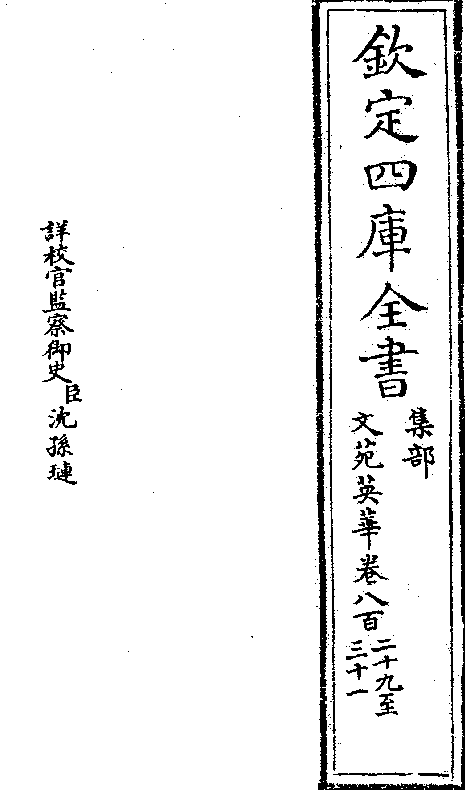 欽定四庫全書
集部
文苑英華卷八百
二十九至
三十一
詳校官監察御史臣沈孫璉